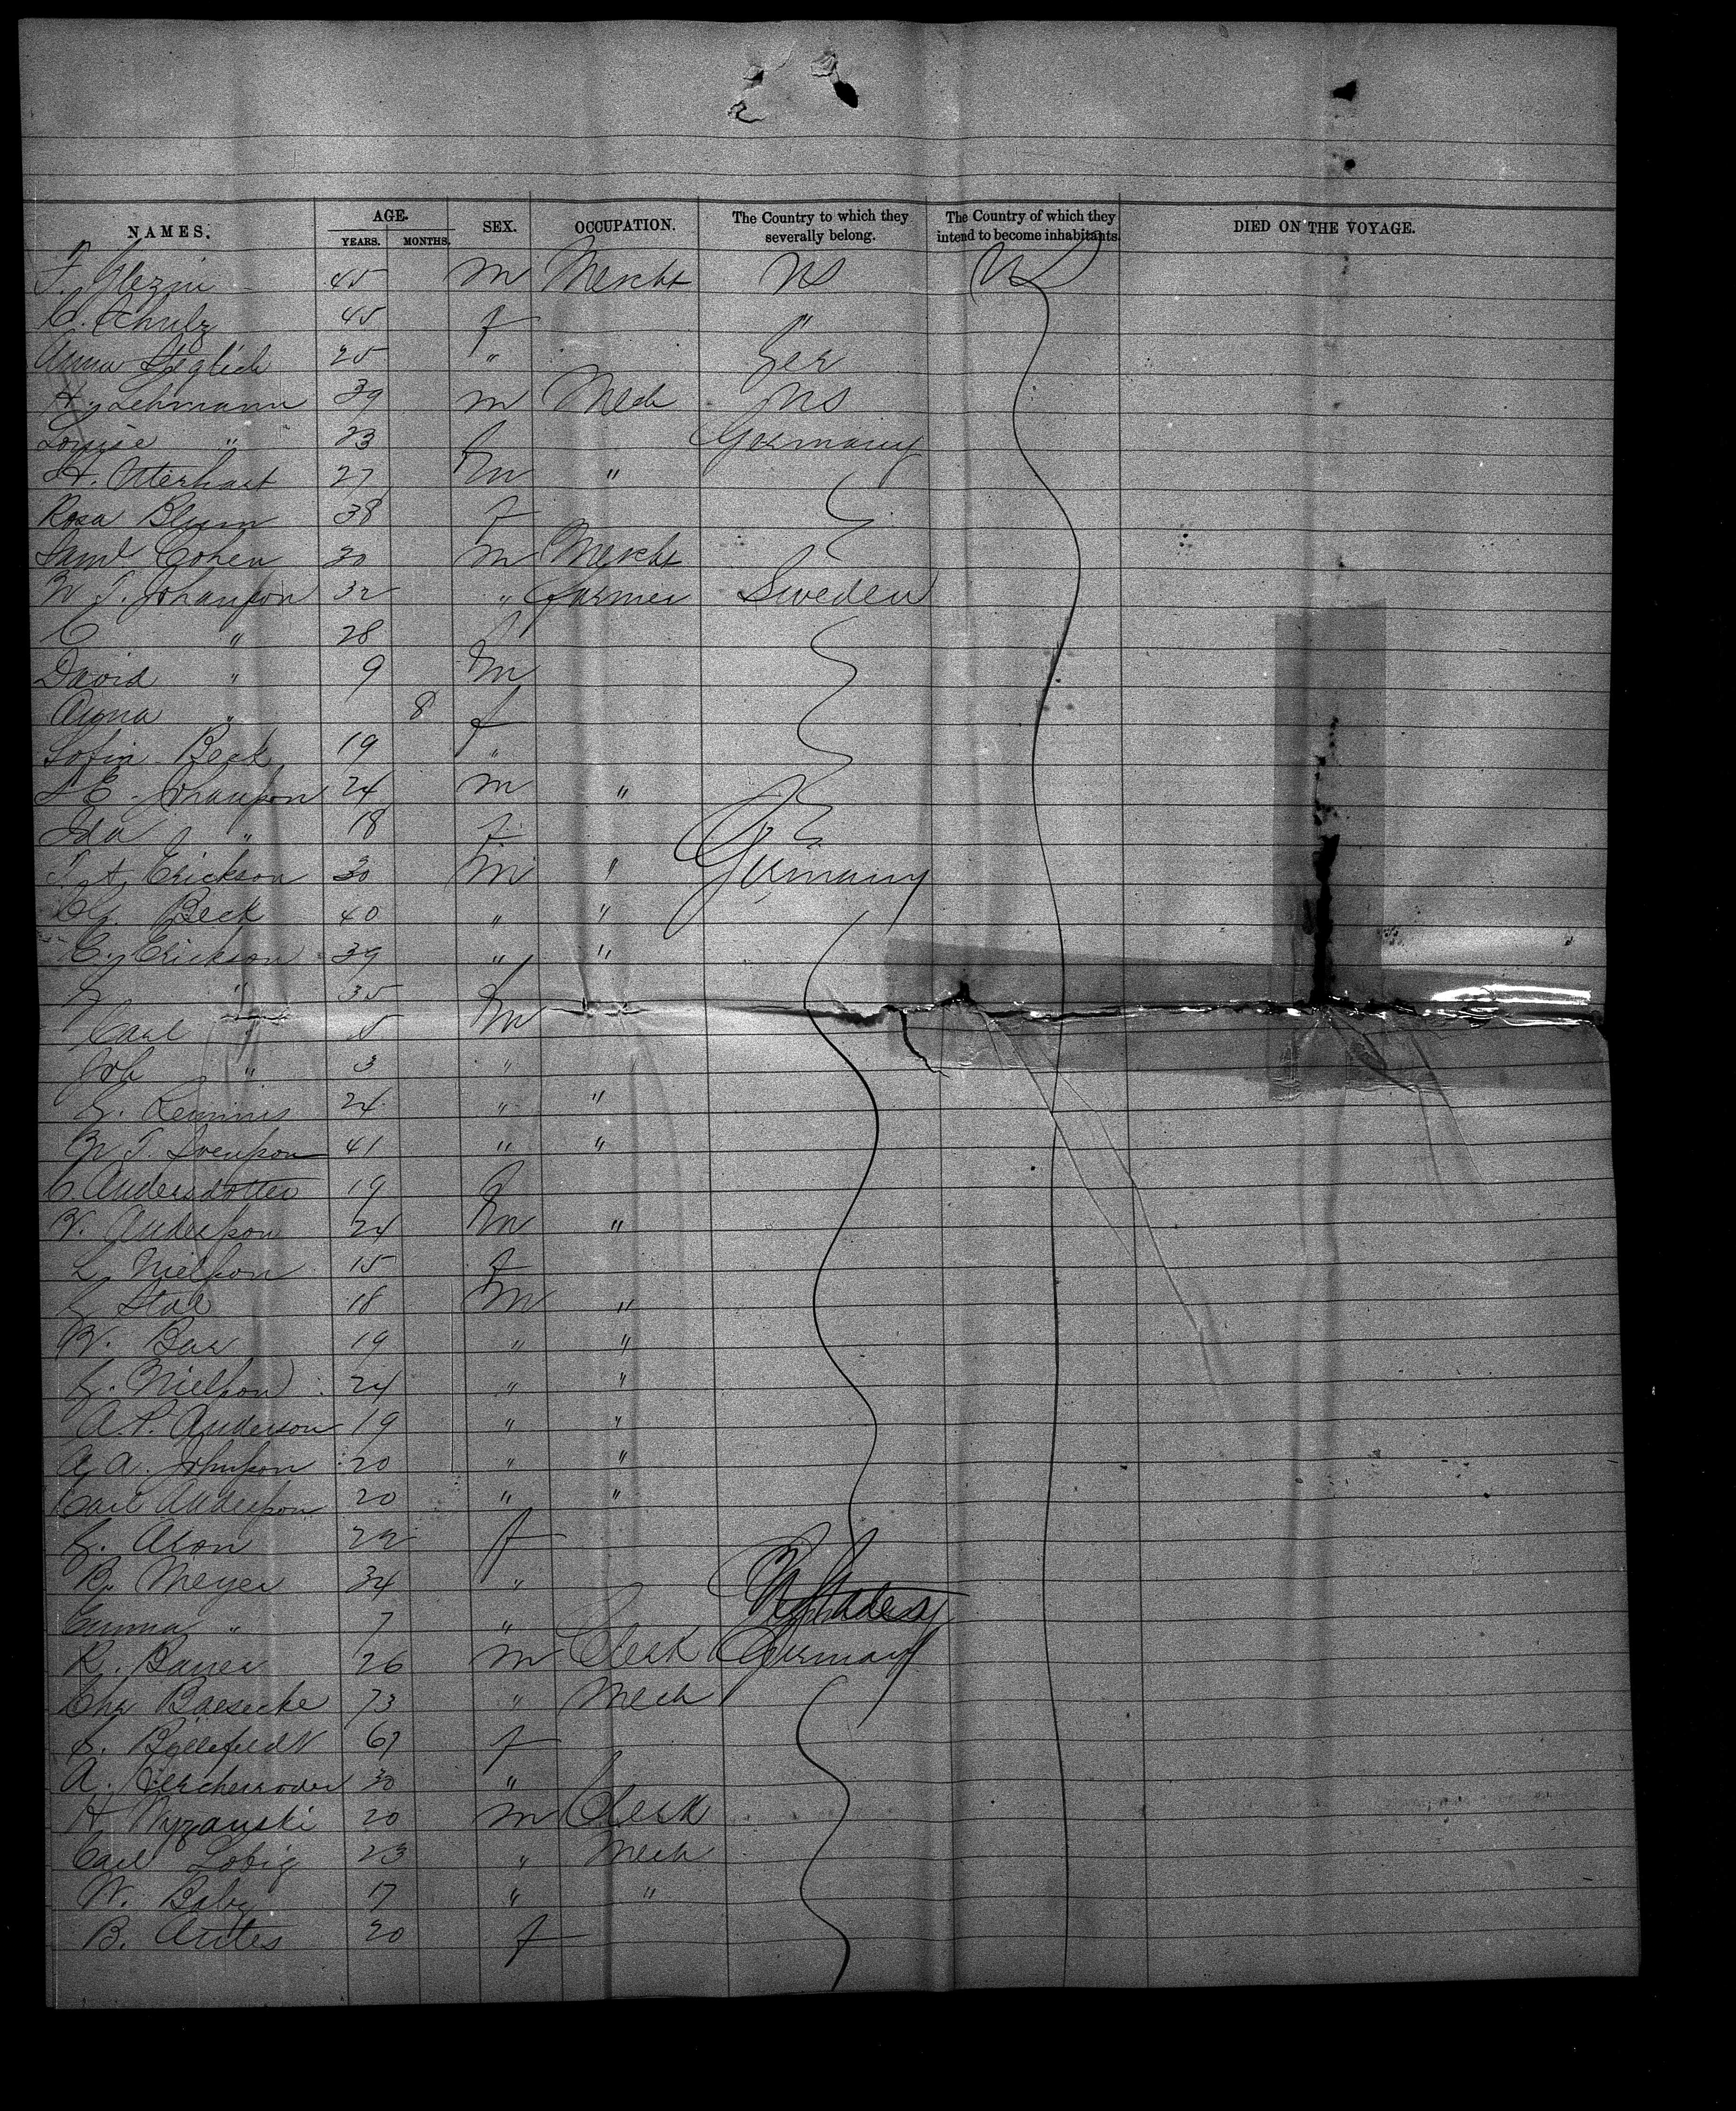 NAMES. AGE. YEARS. MONTHS. SEX. OCCUPATION. The Country to which they severally belong. The Country of which they intend to become inhabitants. DIED ON THE VOYAGE.
F. 45 m Mercht US US
C. Schulz 45 f "
Anna Steglich 25 " Ger
Hy Lehmann 39 m Mech US
Louise " 23 f Germany
H. Utterhart 27 m "
Rosa Blum 38 f
Saml Cohen 30 m Mercht
N T. Johansson 32 " Farmer Sweden
C " 28 f
David " 9 m
Anna " 8 f
Sofia Beck 19 "
A E. Johansson 24 m "
Ida " 18 f
T. A. Erickson 30 m " Germany
Beck 40 " "
C. Erickson 39 " "
" 35 f
Carl " 5 m
Joh " 3 "
24 " "
N T. Svensson 41 " "
C. Andersdotter 19 f
N. Andersson 24 m "
L. Nielsson 15 f
18 m "
N. 19 " "
Nielsson 24 " "
A. P. Anderson 19 " "
A. A. Johnsson 20 " "
Carl Andersson 20 " "
Aron 22 f
B. Meyer 34 " U States
Emma " 7 "
R. Bauer 26 m Clerk Germany
Chr Baesecke 73 " Mech
67 f
A. 30 "
H Wyzanski 20 m Clerk
Carl Lobig 23 " Mech
W. Baby 17 " "
B. Antes 20 f